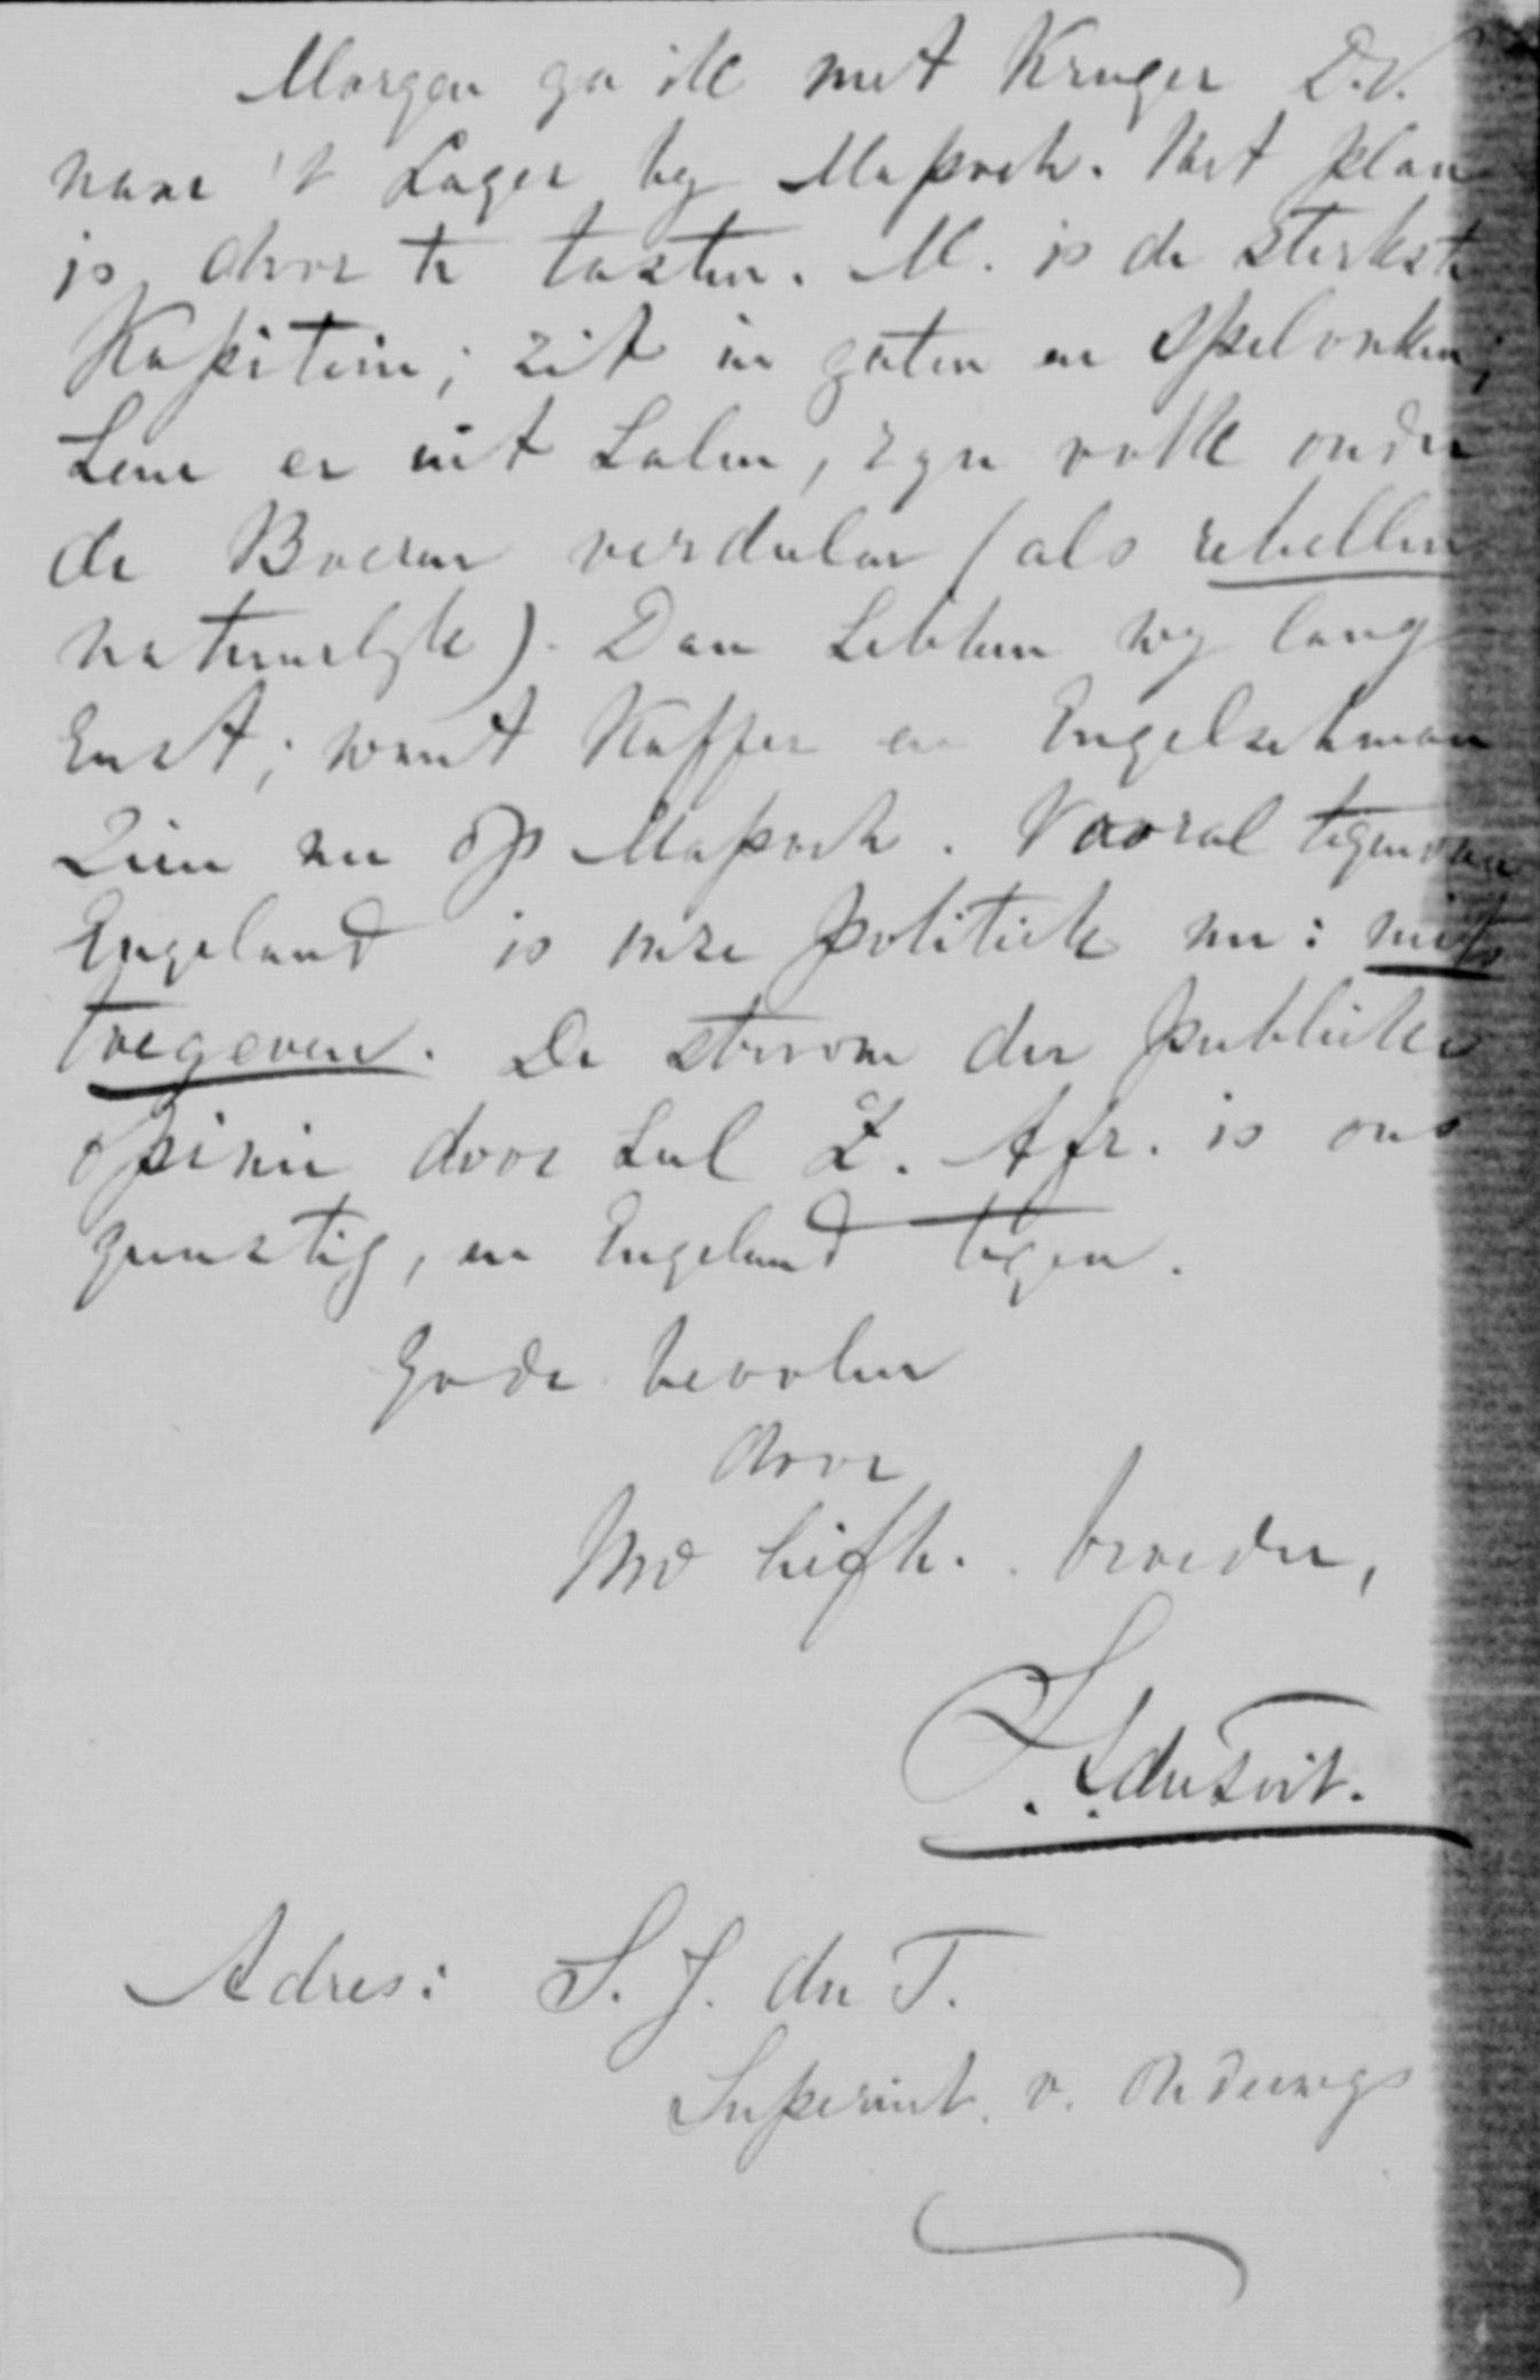 Morgen ga ik met Kruger D.V.
naar 't Lager by Mapoch. Het plan
is door te tasten. M. is de sterkste
Kapitein; zit in gaten en spelonken;
hem er uit halen, zyn volk onder
de Boeren verdeelen (als rebellen
natuurlyk). Dan hebben wy lang
rust; want Kaffer en Engelschman
zien nu op Mapoch. Vooral tegenover
Engeland is onze politiek nu: niets
toegeven. De stroom der publieke
opinie door heel Z. Afr. is ons
gunstig, en Engeland tegen.
Gode bevolen
door
Uw liefh. broeder,
S. J. du Toit.
Adres: S. J. du T.
Superint. v. Onderwys